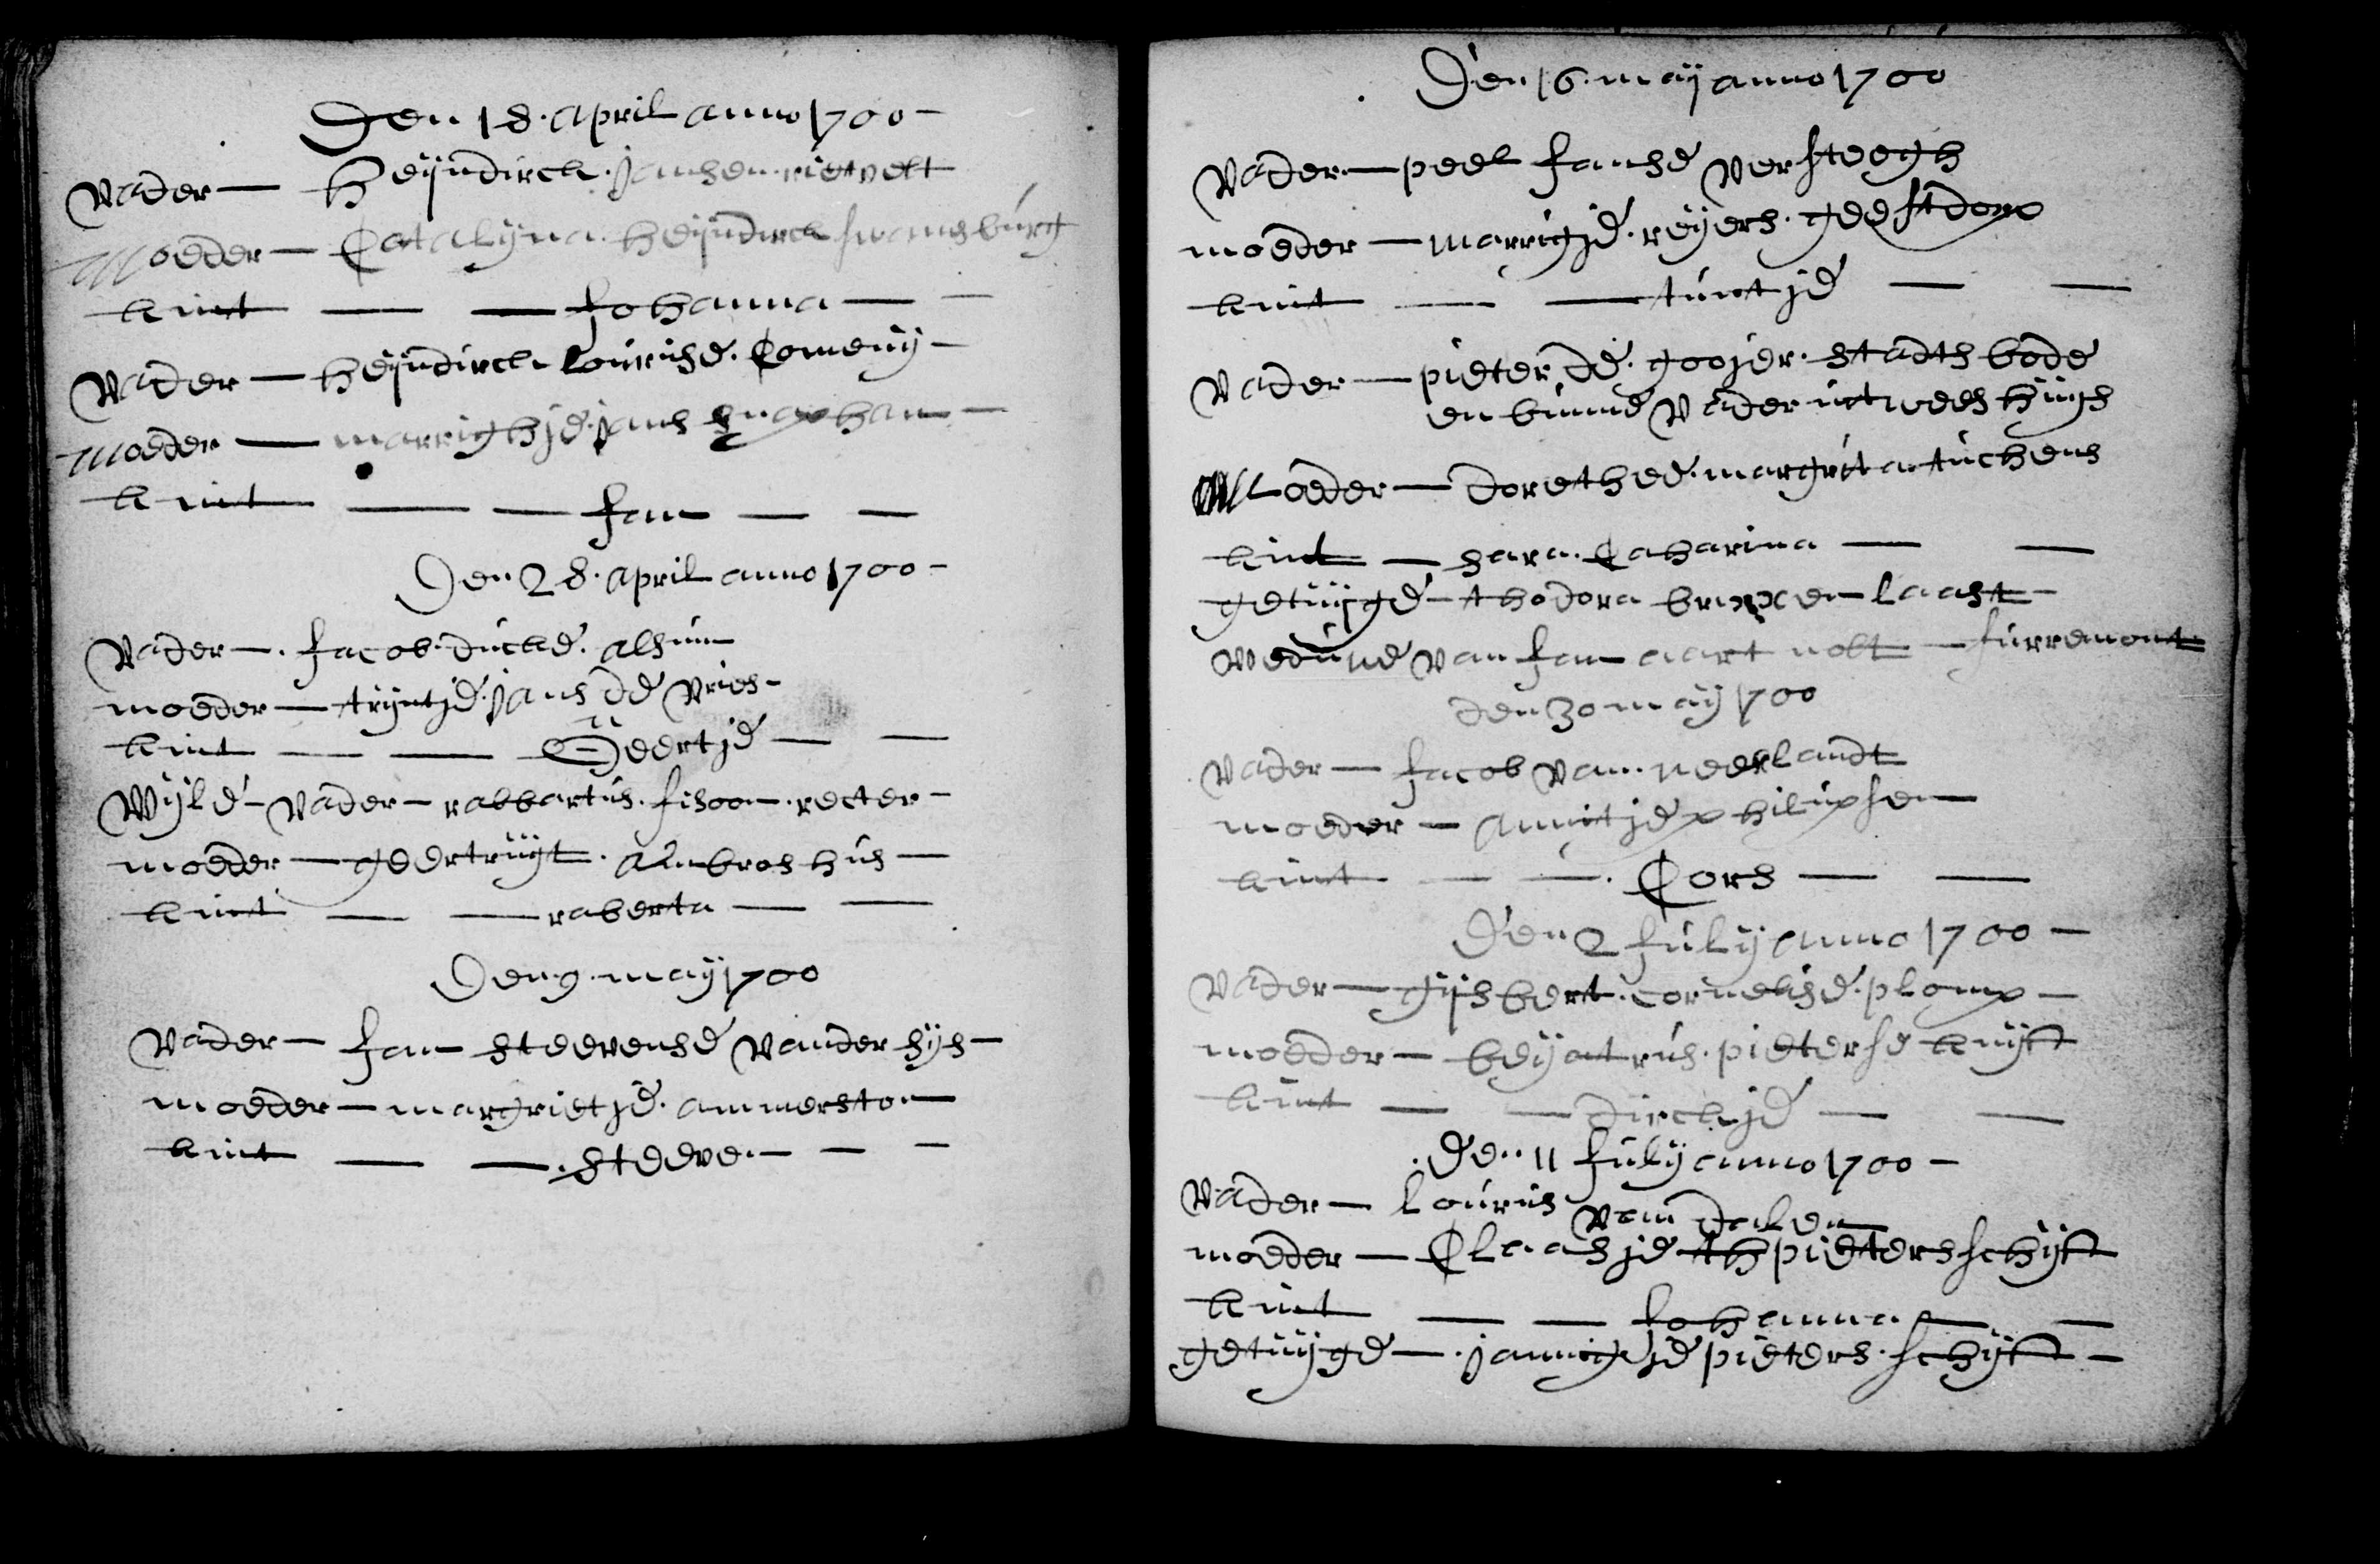 Den 18. april anno 1700 -
Vader - heijndirck. jansen. rietvelt
Moeder - Catalijna. heijndirck swansburg
kint - - Johanna - -
Vader - heijndirck lourisse. Comenij -
Moeder - marrighje jans snaphaen -
kint - - Jan - -
Den 28. april anno 1700 -
Vader -. Jacob. ducke. alsum
moeder - trijntje. jans de vries -
kint - - Geertje - -
Wijle - Vader - rabbartus. fisoon. recter -
moeder - geertruijt. Ambroshus -
kint - - raberta - -
Den 9. maij 1700
Vader - Jan steevense vander sijs -
moeder - margrietje. ammerston
kint - -. steeven - -
Den 16. maij anno 1700
Vader - peel Janse versteegh
moeder - marrigje. reijers. geestdorp
kint - - tuntje - -
Vader - pieter de. goojer. stadts bode
en binne vader int wees huijs
Moeder - dorethee. margrita tuchens
kint - sara. Caharina - -
getuijge - thodora laast -
weduwe van Jan aart nolt - furremont
den 30 maij 1700
Vader - Jacob van. neerlandt
moeder - annitje philipsen
kint - -. Cors - -
Den 2 Julij anno 1700 -
Vader - gijsbert. cornelise. plomp -
moeder - beijatrus. pieterse kuijft
kint - - dirckje - -
. Den 11 Julij anno 1700 -
Vader - louris van dalen
moeder - Claasje th pieters schijft
kint - - Johanna - -
getuijge -. jannigje pieters. schijft -